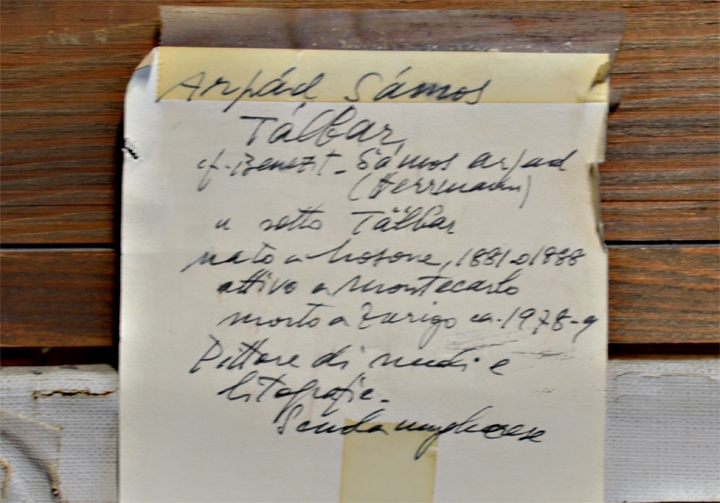 Arpád Sámos
Tálbar,
cf. Benezit - Sámos Arpad
(Herrmann)
e sotto Tälbar
nato a 1881 o 1888
attivo a Montecarlo
morto a Zurigo ca. 1978-9
Pittore di nudi e
litografie.
Scuola ungherese